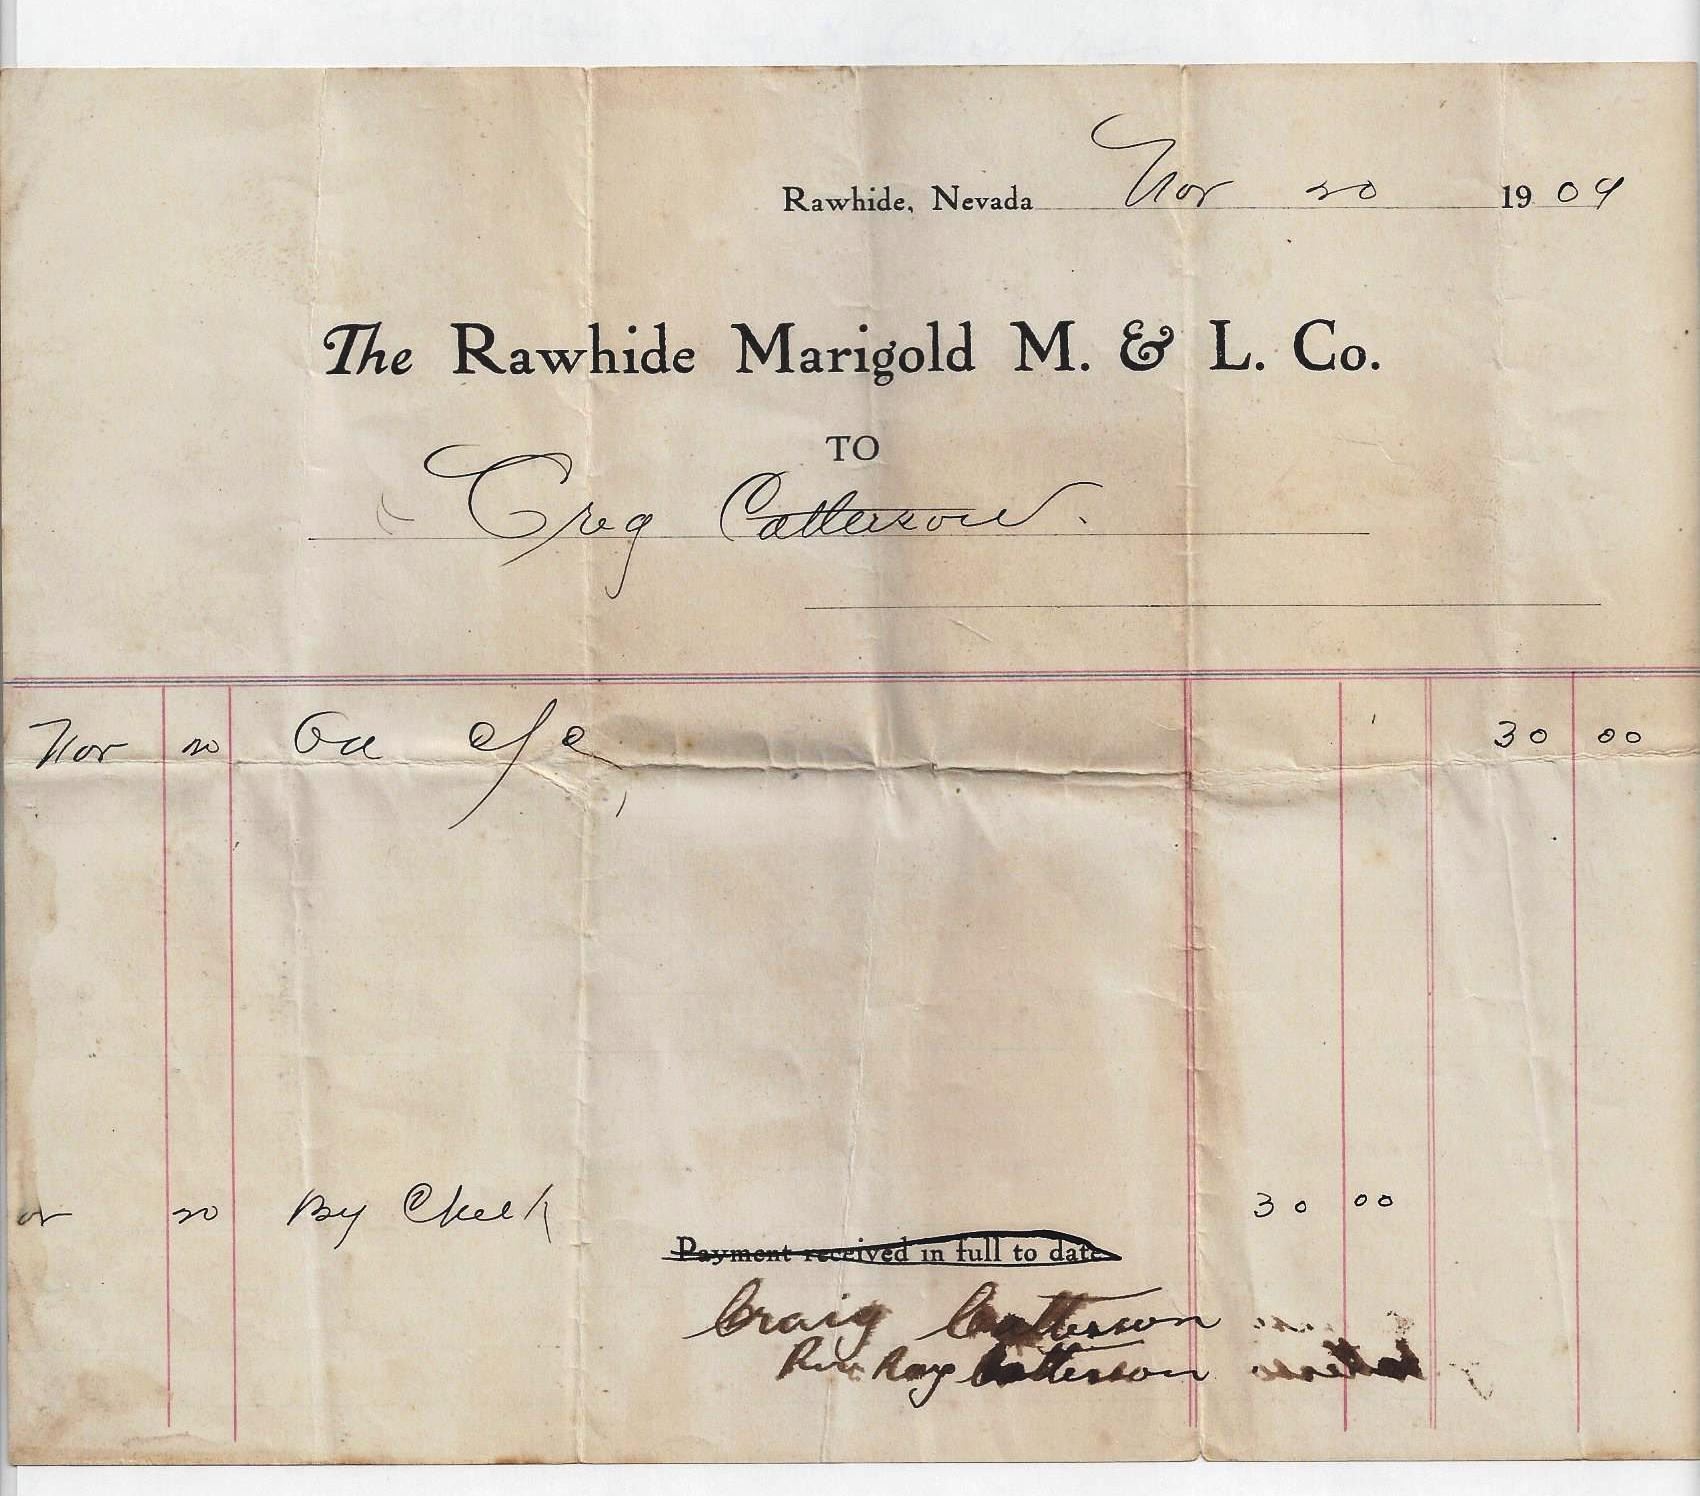 Rawhide, Nevada Nov 20 1909
The Rawhide Marigold M. & L. Co.
TO
Creg Catterson.
Nov 20 On a/c 30 00
ov 20 By Check 30 00
Payment received in full to date
Craig Catterson
Ray Catterson